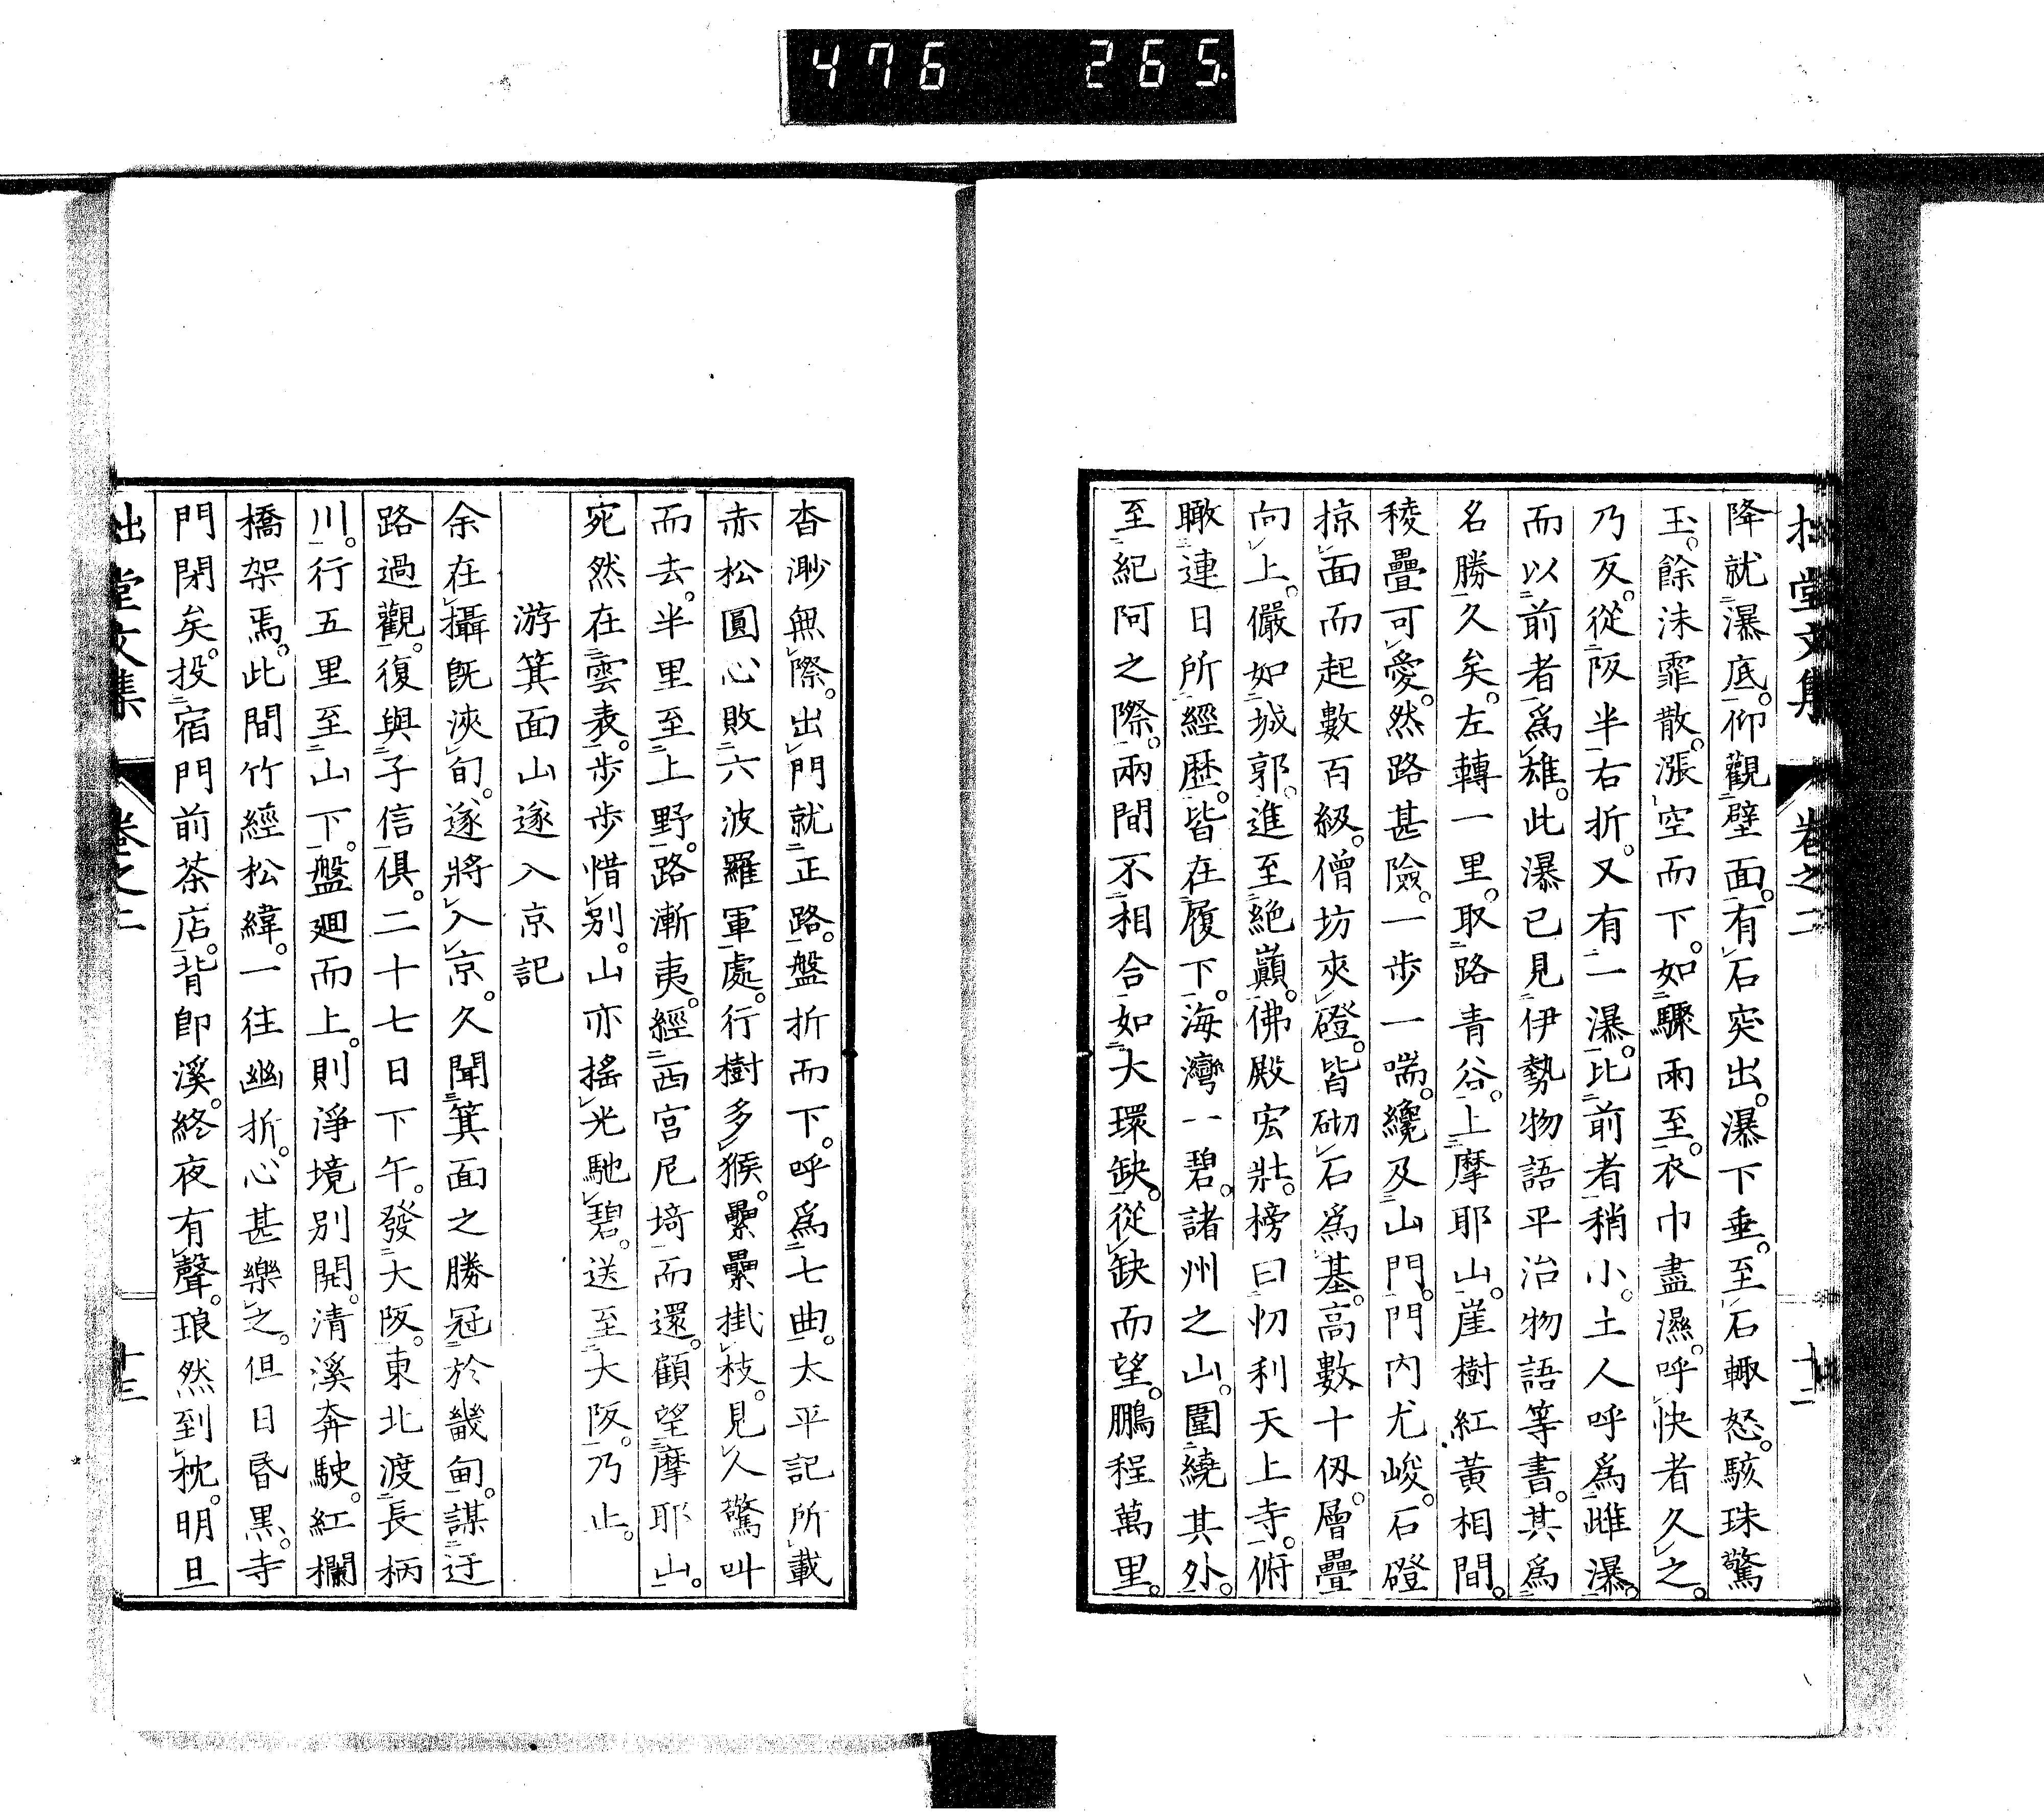 476 265
拙堂文集 卷之二 十二
降就瀑底。仰觀壁面。有石突出。瀑下垂。至石輙怒。駭珠驚
玉。餘沫霏散。漲空而下。如驟雨至。衣巾盡濕。呼快者久之。
乃反。從阪半右折。又有一瀑。比前者稍小。土人呼爲雌瀑。
而以前者爲雄。此瀑已見伊勢物語平治物語等書。其爲
名勝久矣。左轉一里。取路青谷。上摩耶山。崖樹紅黃相間。
稜疊可愛。然路甚險。一步一喘。纔及山門。門內尤峻。石磴
掠面而起數百級。僧坊夾磴。皆砌石爲基。高數十仭。層疊
向上。儼如城郭。進至絕巔。佛殿宏壯。榜曰忉利天上寺。俯
瞰連日所經歷。皆在履下。海灣一碧。諸州之山。圍繞其外。
至紀阿之際。兩間不相合。如大環缺。從缺而望。鵬程萬里。
杳渺無際。出門就正路。盤折而下。呼爲七曲。太平記所載
赤松圓心敗六波羅軍處。行樹多猴。纍纍掛枝。見人驚叫
而去。半里至上野。路漸夷。經西宮尼埼而還。顧望摩耶山。
宛然在雲表。步步惜別。山亦搖光馳碧。送至大阪。乃止。
游箕面山遂入京記
余在攝既浹旬。遂將入京。久聞箕面之勝冠於畿甸。謀迂
路過觀。復與子信俱。二十七日下午。發大阪。東北渡長柄
川。行五里至山下。盤廻而上。則淨境別開。清溪奔駛。紅欄
橋架焉。此間竹經松緯。一往幽折。心甚樂之。但日昏黑。寺
門閉矣。投宿門前茶店。背卽溪。終夜有聲。琅然到枕。明旦
拙堂文集 卷之二 十三